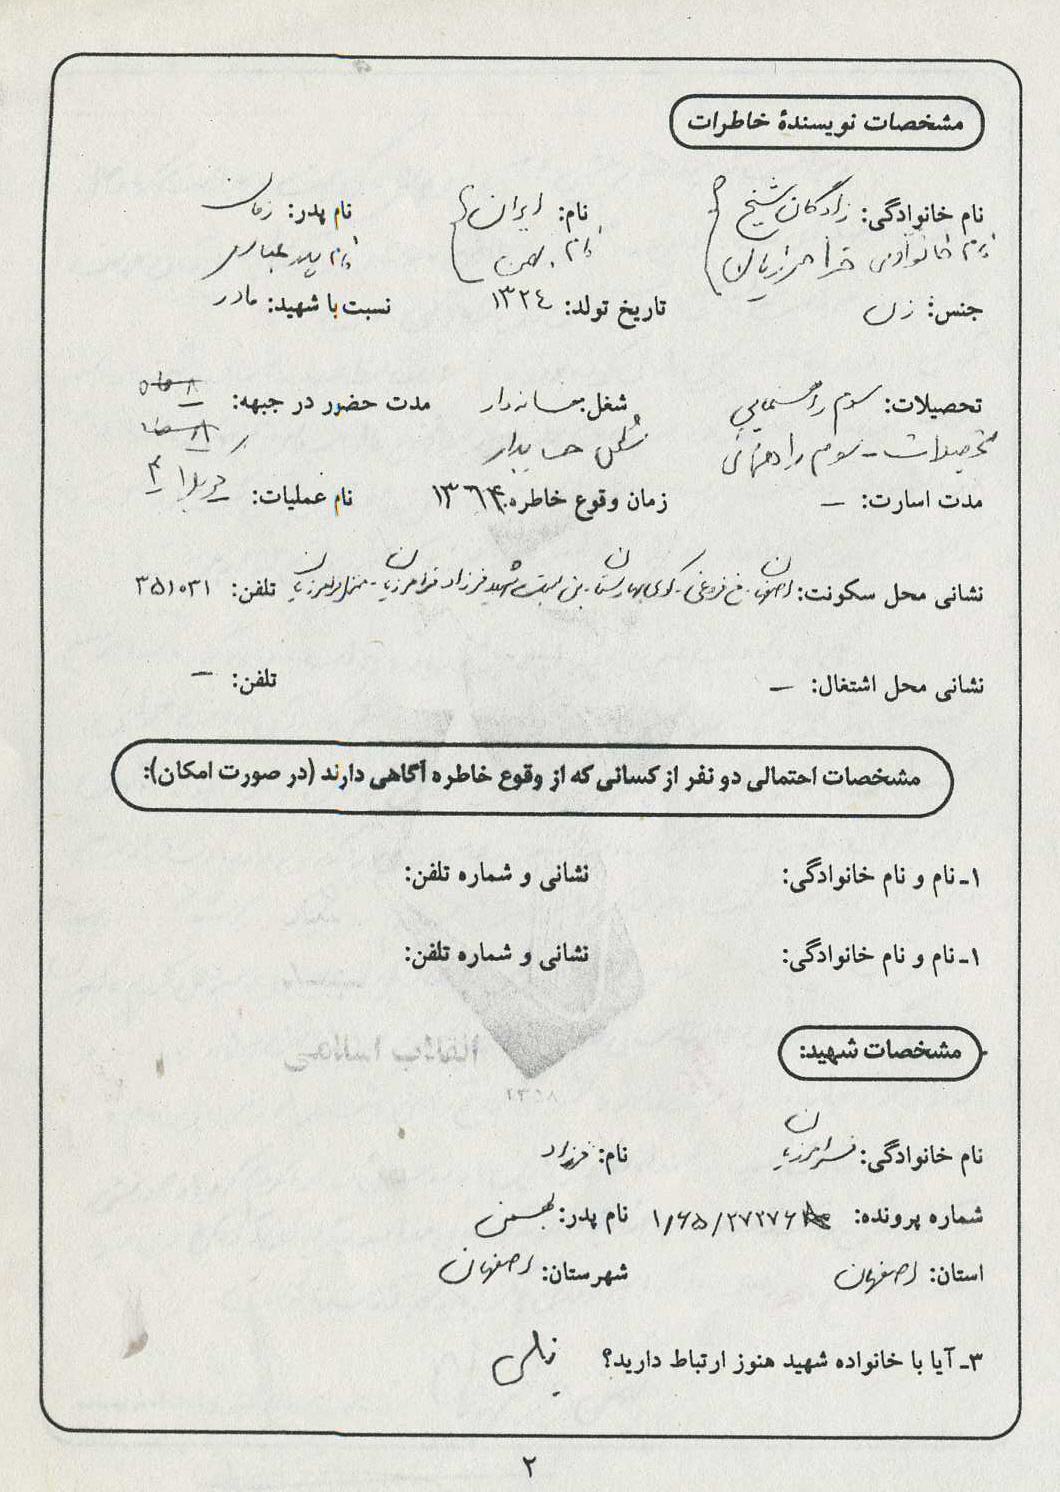 مشخصات نویسندهٔ خاطرات
نام خانوادگی: زادگان شیخ نام: ایران نام پدر: زمان
نام خانوادگی فرامرزیان نام بهمن نام پدر عباس
جنس: زن تاریخ تولد: ۱۳۲٤ نسبت با شهید: مادر
تحصیلات: سوم راهنمایی شغل: خانه‌دار مدت حضور در جبهه: ۸ ماه
تحصیلات - سوم راهنمائی شغل حسابدار ۸ ماه
مدت اسارت: – زمان وقوع خاطره: ۱۳٦۴ نام عملیات: کربلا ۴
نشانی محل سکونت: اصفهان - خ فروغی - کوی بهارستان - بن بست شهید فرزاد فرامرزیان - منزل فرامرزیان تلفن: ۳۵۱۰۳۱
نشانی محل اشتغال: – تلفن: –
مشخصات احتمالی دو نفر از کسانی که از وقوع خاطره آگاهی دارند (در صورت امکان):
۱ـ نام و نام خانوادگی: نشانی و شماره تلفن:
۱ـ نام و نام خانوادگی: نشانی و شماره تلفن:
مشخصات شهید:
نام خانوادگی: فرامرزیان نام: فرزاد
شماره پرونده: ۱/۶۵/۲۷۲۷۶ نام پدر: بهمن
استان: اصفهان شهرستان: اصفهان
۳ـ آیا با خانواده شهید هنوز ارتباط دارید؟ بلی
۲